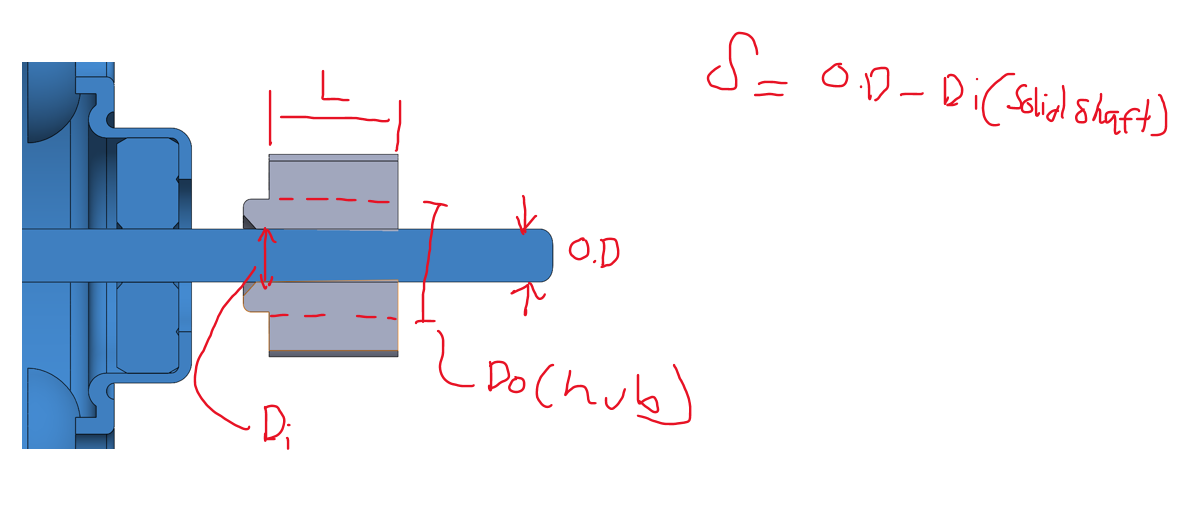 δ = O.D - Di (Solid shaft)
L
O.D
Do (hub)
Di